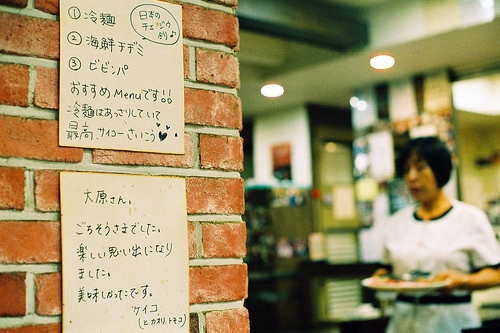 ① 冷麺
日本の
チェジウ
より♪
② 海鮮チヂミ
③ ビビンパ
おすすめMenuです!!
冷麺はあっさりしていて
最高 サイコー さいこう
大原さん。
ごちそうさまでした。
楽しい思い出になり
ました。
美味しかったです。
ケイコ
(とカオリ、トモコ)